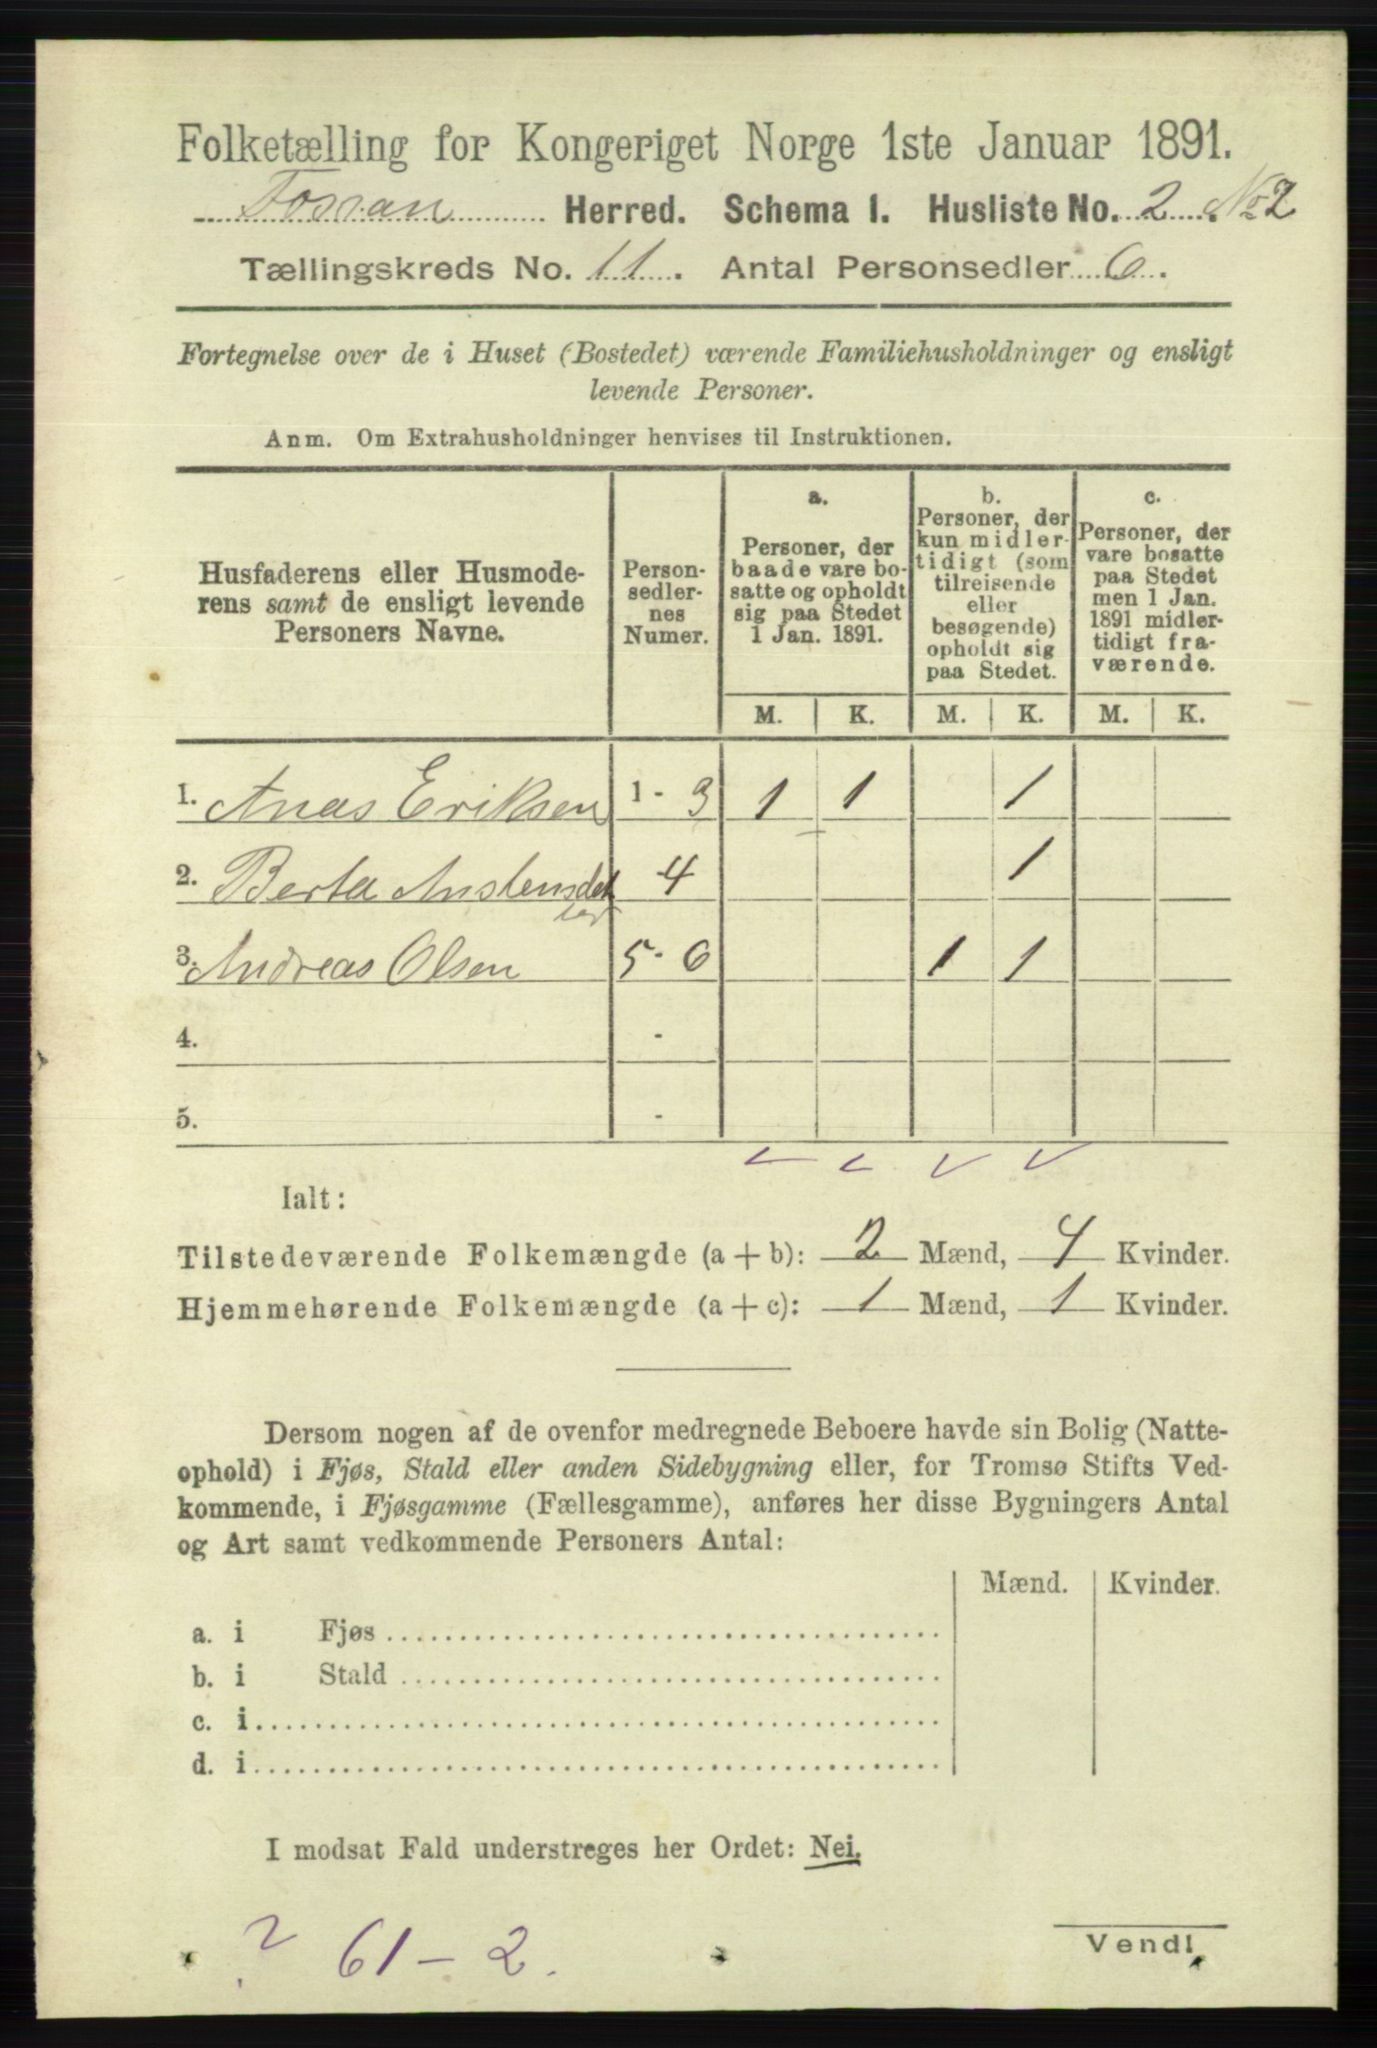 Folketælling for Kongeriget Norge 1ste Januar 1891.
Fossan Herred. Schema I. Husliste No. 2. No 2
Tællingskreds No. 11. Antal Personsedler 6.
Fortegnelse over de i Huset (Bostedet) værende Familiehusholdninger og ensligt
levende Personer.
Anm. Om Extrahusholdninger henvises til Instruktionen.
Husfaderens eller Husmode-
rens samt de ensligt levende
Personers Navne.
Person-
sedler-
nes
Numer.
a.
Personer, der
baade vare bo-
satte og opholdt
sig paa Stedet
1 Jan. 1891.
b.
Personer, der
kun midler-
tidigt (som
tilreisende
eller
besøgende)
opholdt sig
paa Stedet.
c.
Personer, der
vare bosatte
paa Stedet
men 1 Jan.
1891 midler-
tidigt fra-
værende.
M. K. M. K. M. K.
1. Anas Eriksen 1 - 3 1 1 1
2. Berta Austensdat 4 1
ter
3. Andreas Olsen 5 - 6 1 1
4. -
5. -
Ialt:
Tilstedeværende Folkemængde (a + b): 2 Mænd, 4 Kvinder.
Hjemmehørende Folkemængde (a + c): 1 Mænd, 1 Kvinder.
Dersom nogen af de ovenfor medregnede Beboere havde sin Bolig (Natte-
ophold) i Fjøs, Stald eller anden Sidebygning eller, for Tromsø Stifts Ved-
kommende, i Fjøsgamme (Fællesgamme), anføres her disse Bygningers Antal
og Art samt vedkommende Personers Antal:
Mænd. Kvinder.
a. i Fjøs
b. i Stald
c. i
d. i
I modsat Fald understreges her Ordet: Nei.
? 61 - 2.
Vend!